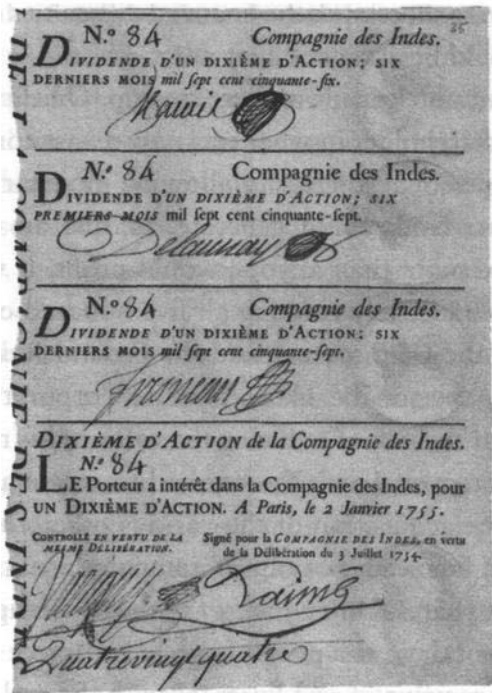 35
N.º 84 Compagnie des Indes.
DIVIDENDE D'UN DIXIÈME D'ACTION; SIX
DERNIERS MOIS mil ſept cent cinquante-ſix.
N.º 84 Compagnie des Indes.
DIVIDENDE D'UN DIXIÈME D'ACTION; SIX
PREMIERS MOIS mil ſept cent cinquante-ſept.
Delaunay
N.º 84 Compagnie des Indes.
DIVIDENDE D'UN DIXIÈME D'ACTION; SIX
DERNIERS MOIS mil ſept cent cinquante-ſept.
DIXIÈME D'ACTION de la Compagnie des Indes.
N.º 84
LE Porteur a intérêt dans la Compagnie des Indes, pour
UN DIXIÈME D'ACTION. A Paris, le 2 Janvier 1755.
CONTROLLÉ EN VERTU DE LA
MESME DÉLIBÉRATION.
Signé pour la COMPAGNIE DES INDES, en vertu
de la Délibération du 3 Juillet 1754.
Quatrevingt quatre
DE LA COMPAGNIE DES INDES